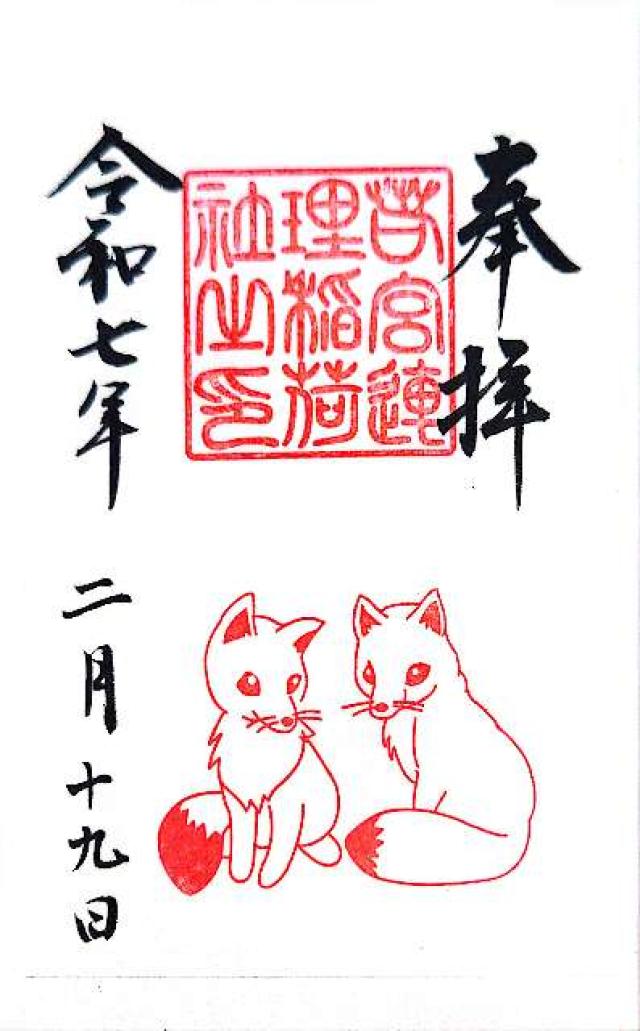 奉拝
若宮連
理稲荷
社之印
令和七年二月十九日